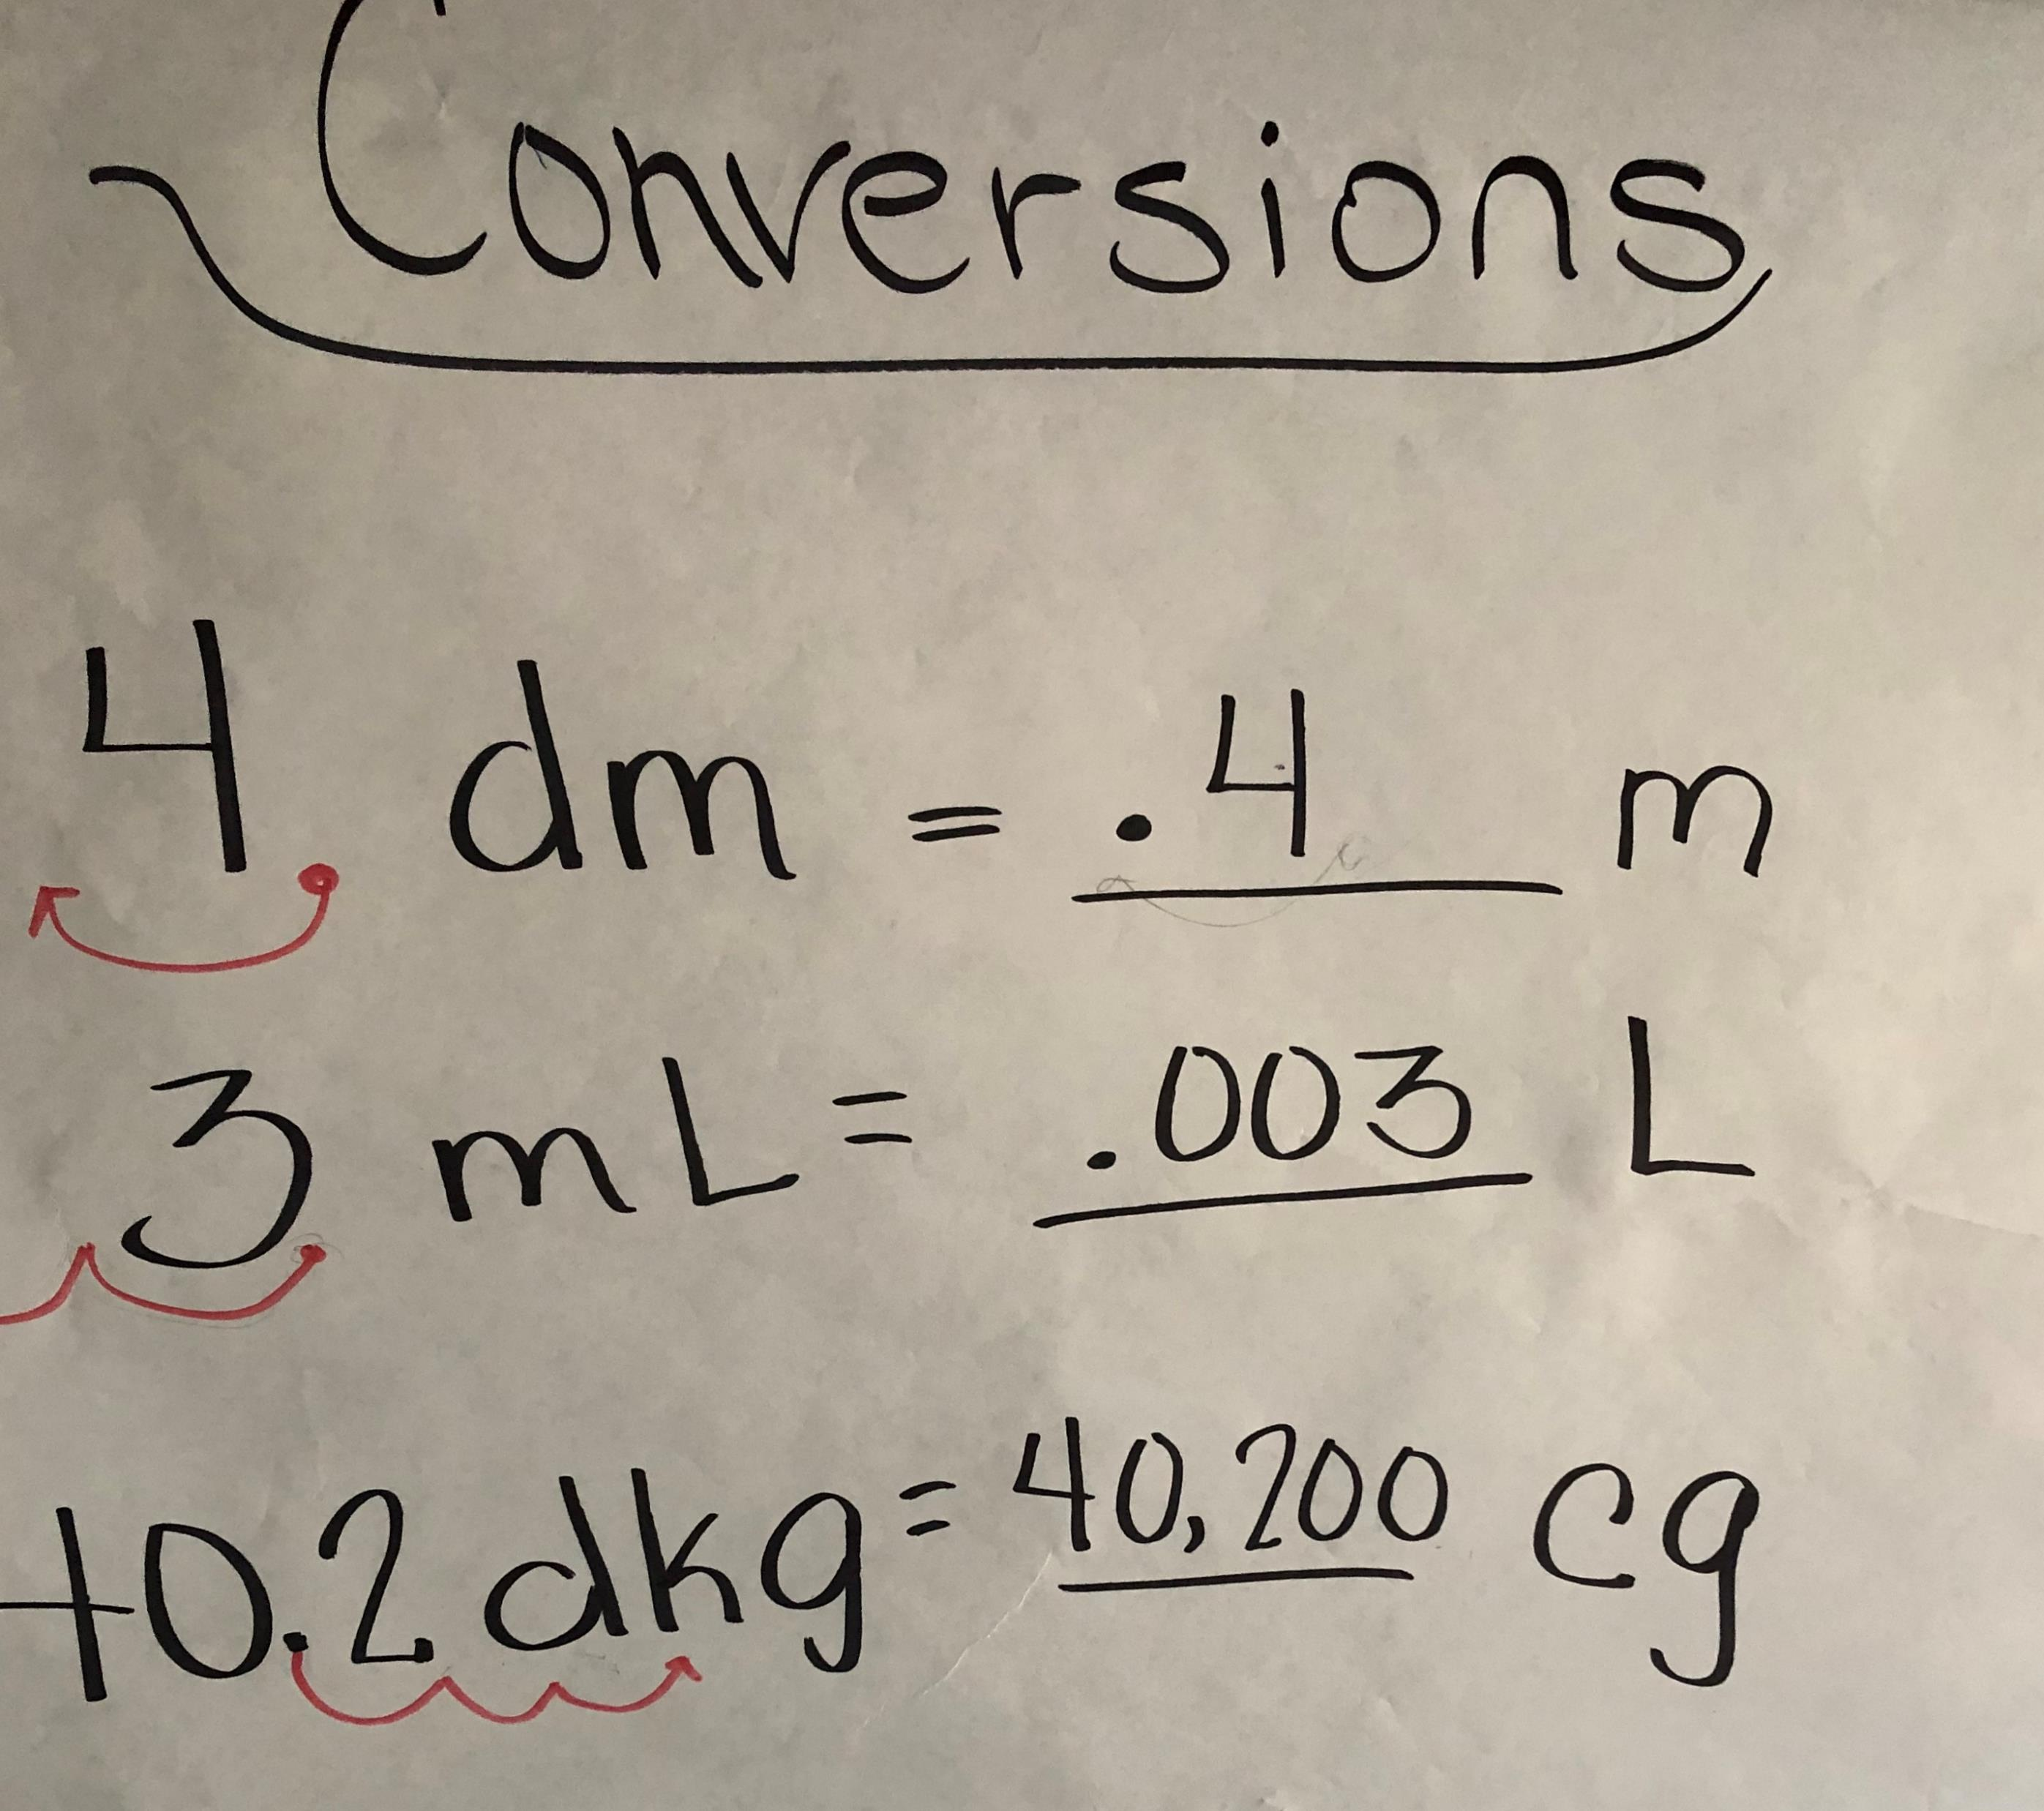 Conversions
4 dm = .4 m
3 mL = .003 L
40.2 dkg = 40,200 cg